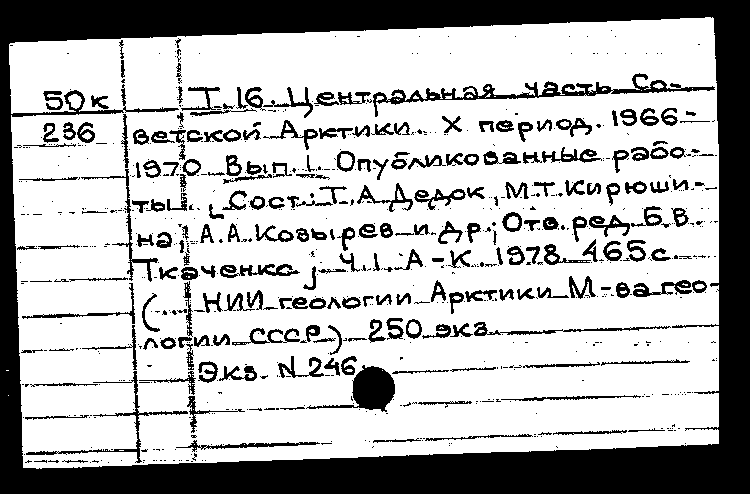 50к Т.16. Центральная часть Со-
236 ветской Арктики. X период. 1966-
1970 Вып.1. Опубликованные рабо-
ты. [Сост.: Т.А Дедок, М.Т.Кирюши-
на, А.А.Козырев и др.; Отв. ред. Б.В.
Ткаченко] Ч.1. А-К. 1978. 465с.
(... НИИ геологии Арктики М-ва гео-
логии СССР) 250 экз.
Экз. N 246.